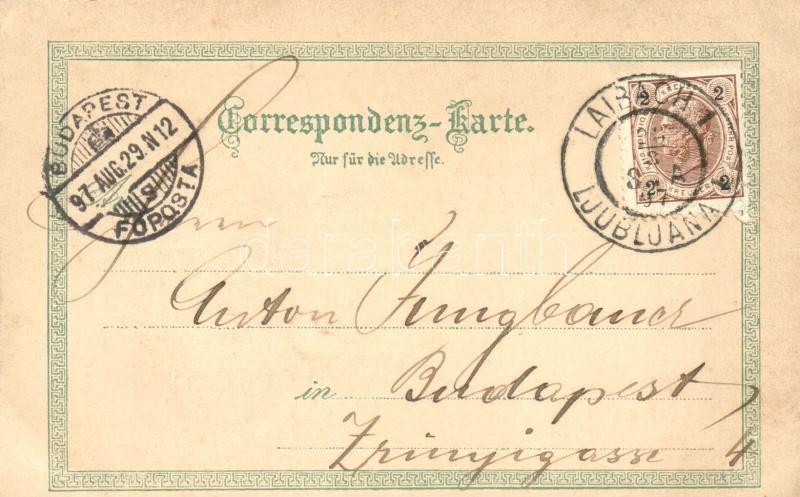 Correspondenz-Karte.
Nur für die Adresse.
BUDAPEST
97 AUG. 29. N 12
FŐPOSTA
LAIBACH 1
LJUBLJANA
97
2 2
2 2
KREUZER
darabanth
Herrn
Anton Jungbauer
in Budapest
Zrinyigasse 4